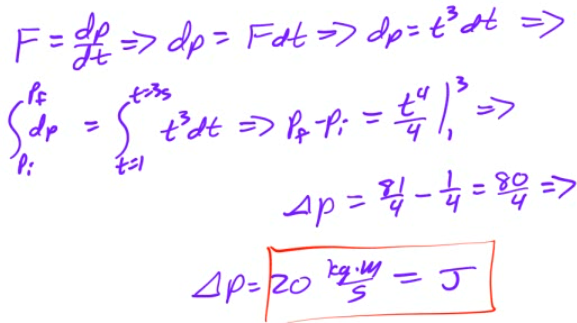 F = dp/dt => dp = Fdt => dp = t³dt =>
∫_{Pi}^{Pf} dp = ∫_{t=1}^{t=3s} t³dt => Pf - Pi = t⁴/4 |₁³ =>
Δp = 81/4 - 1/4 = 80/4 =>
Δp = 20 kg·m/s = J